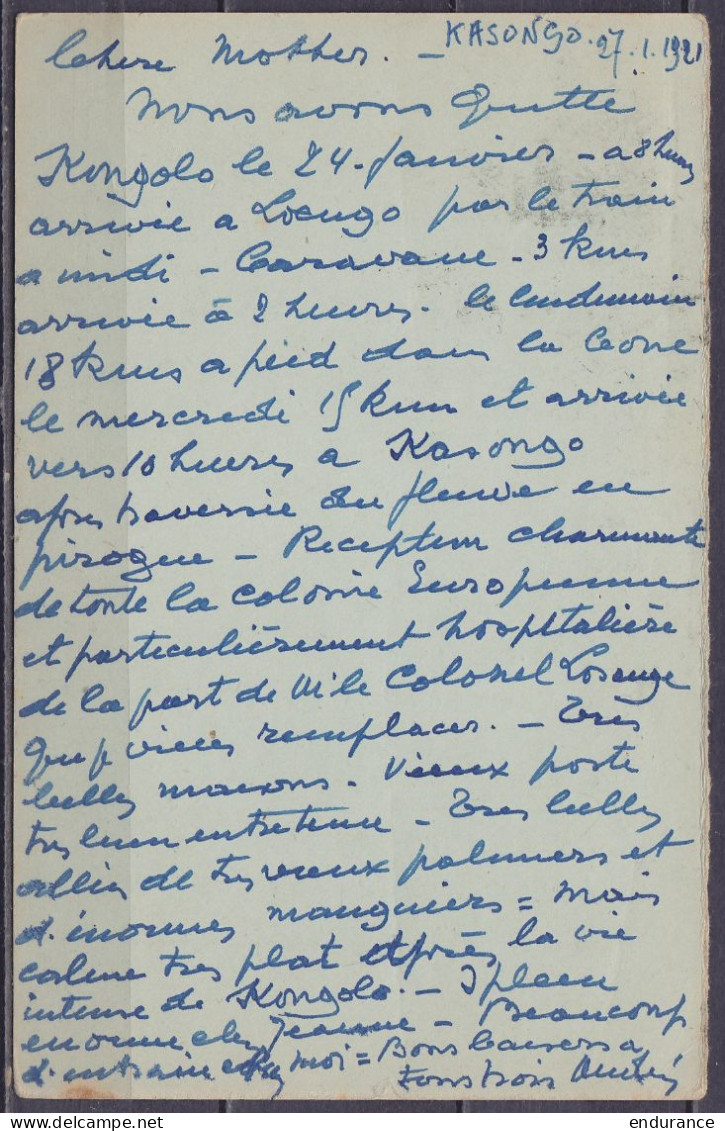 Chere Mother. — KASONGO. 27.1.1921
Nous avons quitte
Kongolo le 24 Janvier — a 8 heures
arrivée a Lokugo par le train
a midi — Caravane — 3 kms
arrivée à 2 heures. le lendemain
18 kms a pied dans la
le mercredi 15 km et arrivée
vers 10 heures a Kasongo
apres traversée du fleuve en
pirogue — Reception charmante
de toute la colonie Europeenne
et particulièrement hospitalière
de la part de Mr le Colonel
que je viens remplacer. — Très
belles maisons. Vieux poste
tres bien entretenu — Tres belles
allées de tres vieux palmiers et
d'énormes manguiers = Mais
calme tres plat après la vie
intense de Kongolo. — Spleen
enorme chez Jeanne — Beaucoup
d'entrain chez moi = Bons baisers a
tous trois André
endurance